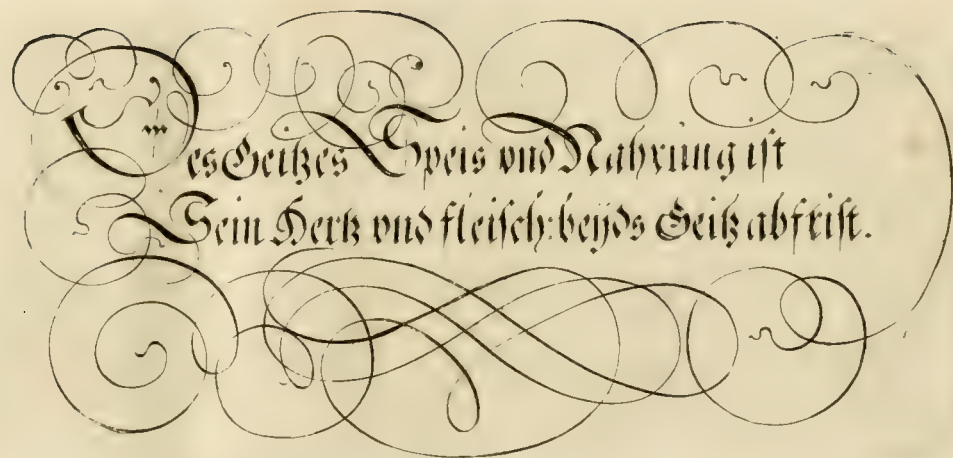 Des Geitzes Speis vnd Nahrung ist
Sein Hertz vnd fleisch: beyds Geitz abfrist.